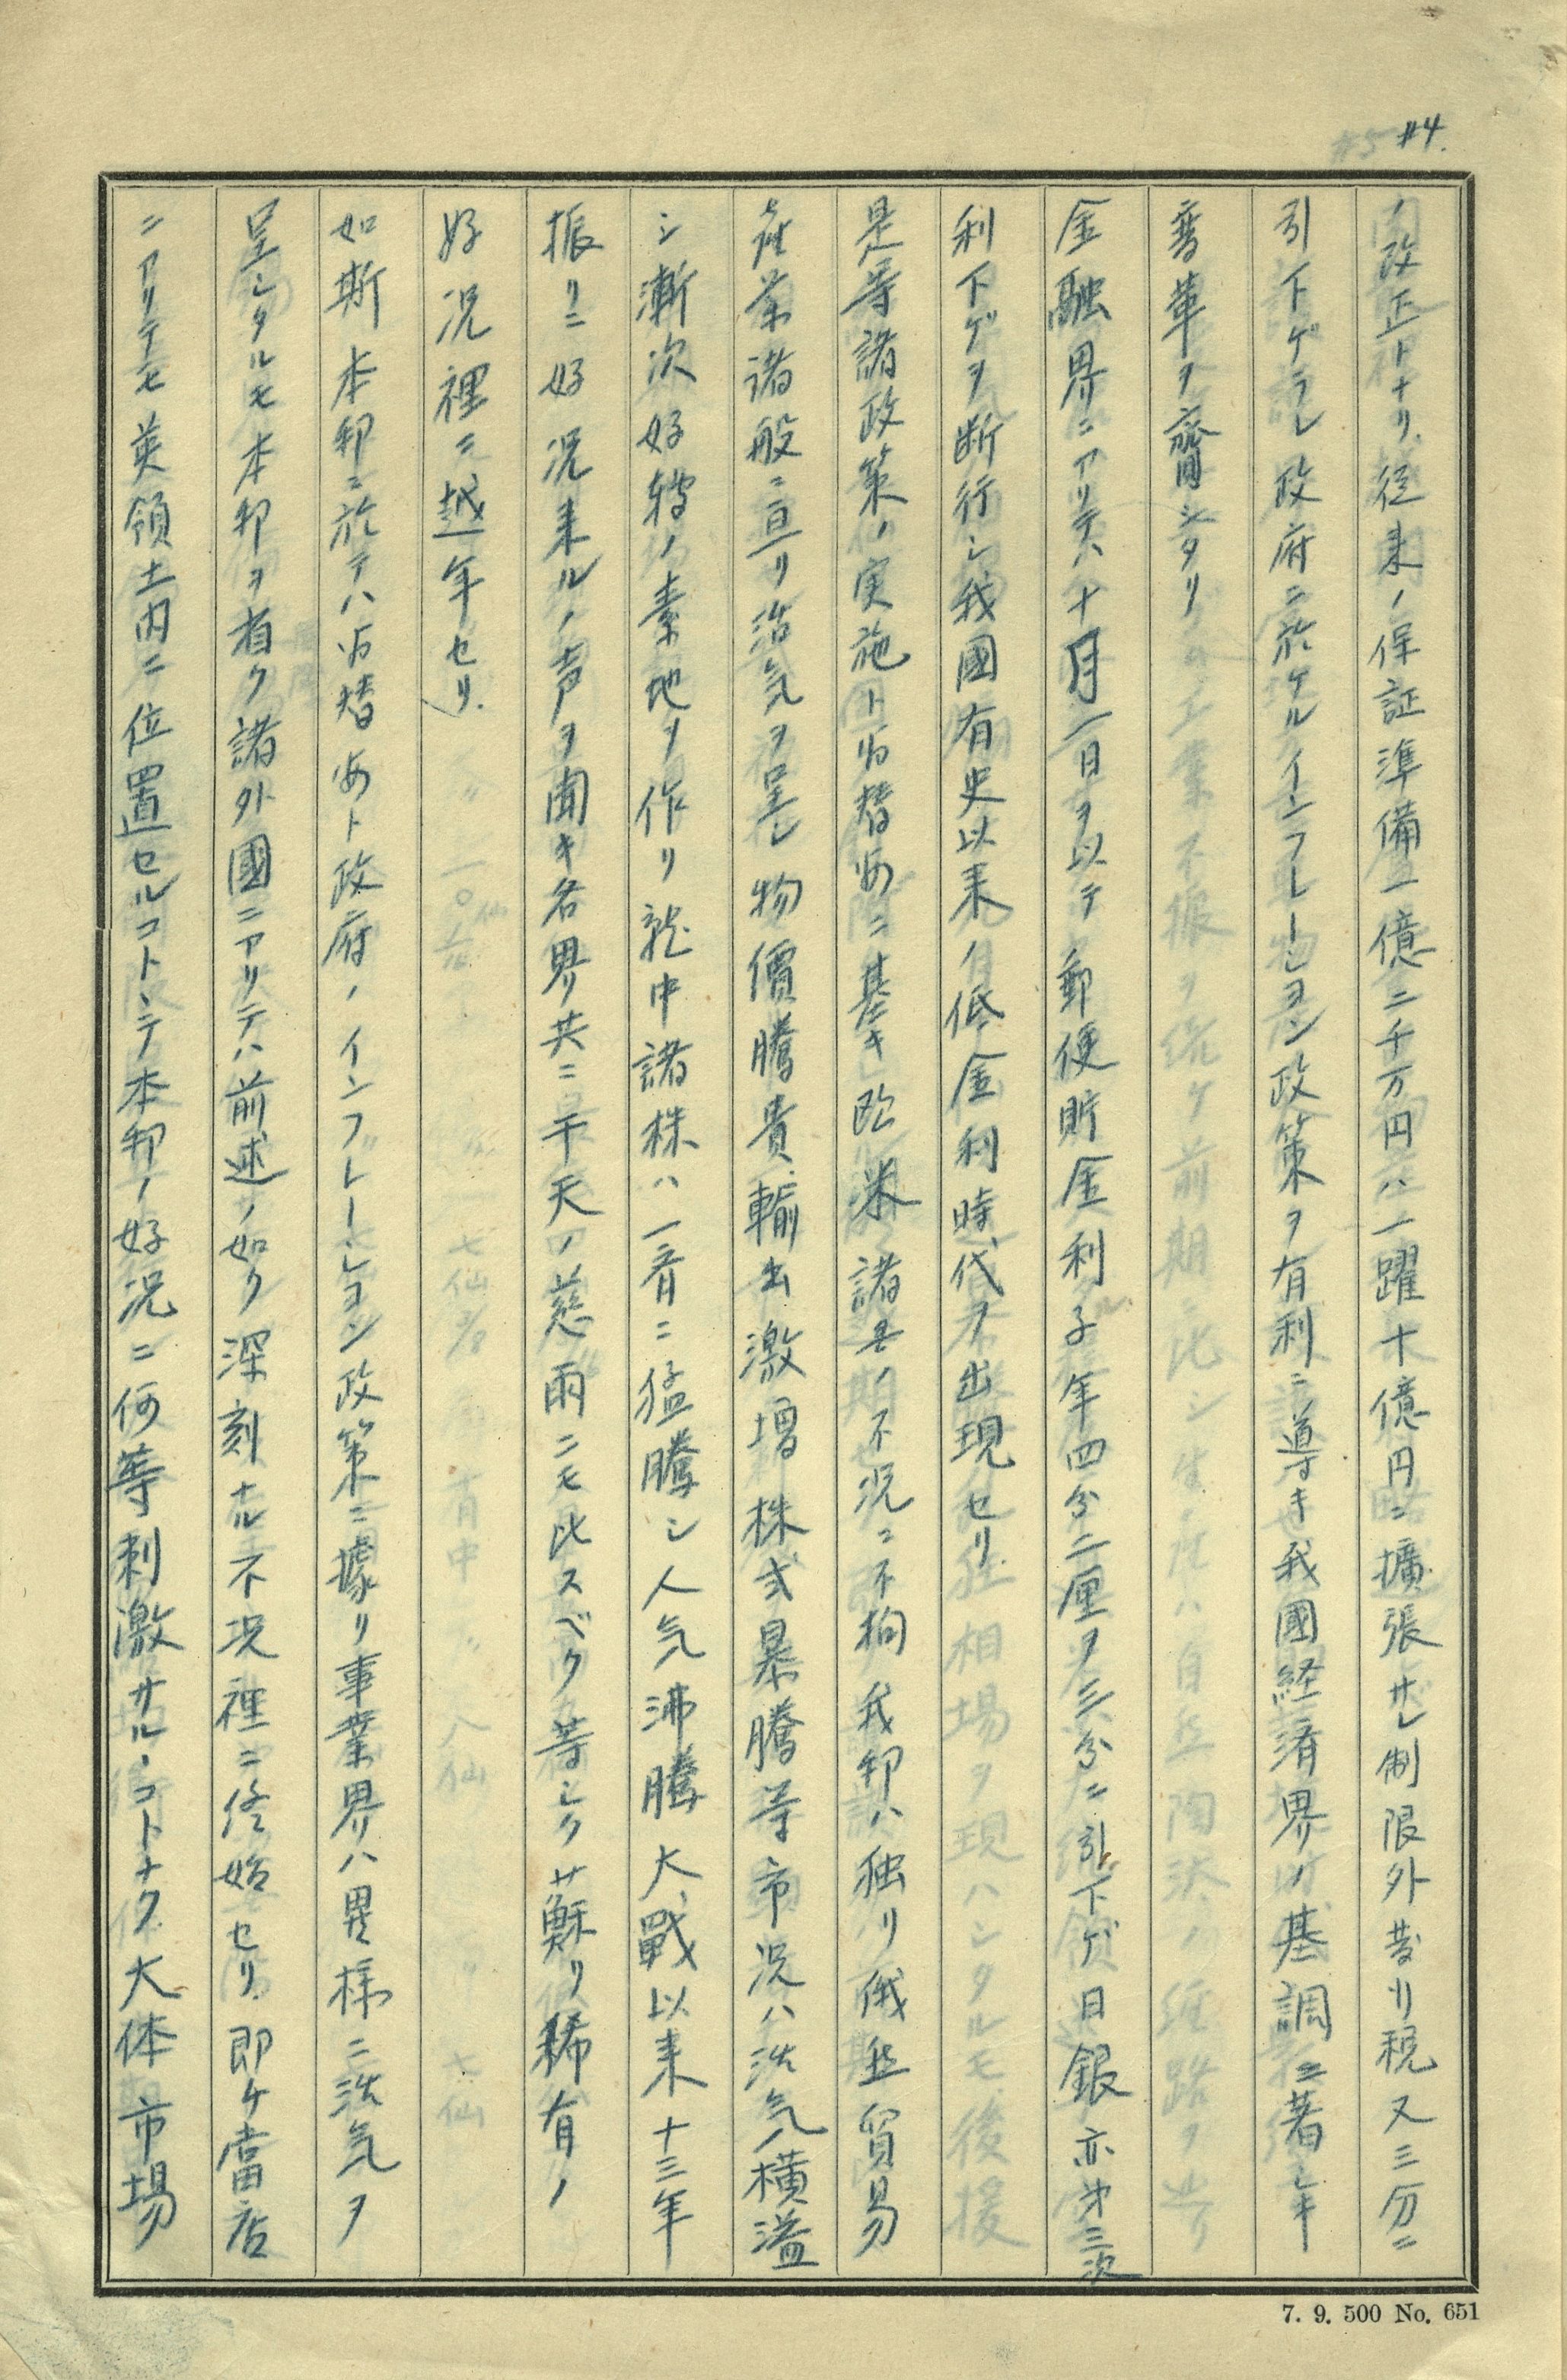 #4.
ノ改正トナリ、従来ノ保証準備一億二千万円ハ一躍十億円ニ擴張サレ制限外発行税又三分ニ
引下ゲラレ政府ニ於ケルインフレーシヨン政策ヲ有利ニ導キ我國経済界ノ基調ニ著シキ
変革ヲ齎シタリ
金融界ニアリテハ十月一日ヲ以テ郵便貯金利子年四分二厘ヲ三分ニ引下ゲ日銀亦第三次
利下ゲヲ断行シ我國有史以来ノ低金利時代ヲ出現セリ
是等諸政策ノ実施ト為替安ニ基キ欧米諸国ノ不況ニ不拘我邦ハ独リ俄然貿易
産業諸般ニ亘リ活気ヲ呈シ物價騰貴、輸出激増株式暴騰等市況ハ活気横溢
シ漸次好轉ノ素地ヲ作リ就中諸株ハ一斉ニ猛騰シ人気沸騰大戰以来十三年
振リニ好況来ルノ声ヲ聞キ各界共ニ干天ノ慈雨ニモ比スベク等シク蘇リ稀有ノ
好況裡ニ越年セリ.
如斯本邦ニ於テハ為替安ト政府ノインフレーシヨン政策ニ據リ事業界ハ異様ニ活気ヲ
呈シタルモ本邦ヲ省ク諸外國ニアリテハ前述ノ如ク深刻ナル不況裡ニ終始セリ、即ケ當店
ニアリテモ英領土内ニ位置セルコトシテ本邦ノ好況ニ何等刺激サルヽコトナク、大体市場
7. 9. 500 No. 651